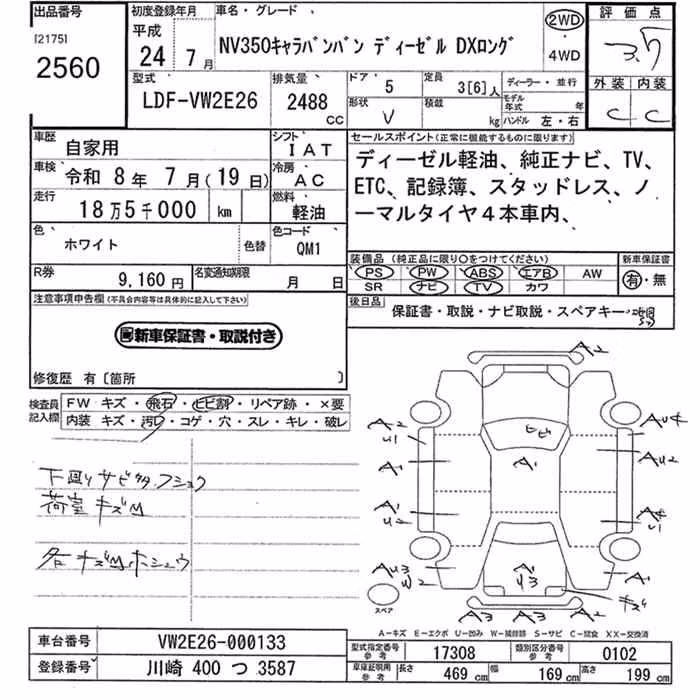 出品番号
[2175]
2560
初度登録年月
平成
24年 7月
車名・グレード
NV350キャラバンバン ディーゼル DXロング
2WD
4WD
評価点
3.5
外装 内装
C C
型式
LDF-VW2E26
排気量
2488 CC
ドア 5
定員 3[6]人
ディーラー・並行
形状 V
積載 kg
モデル年式 年
ハンドル 左・右
車歴 自家用
シフト IAT
車検 令和 8年 7月(19日)
冷房 AC
走行 18万5千000 km
燃料 軽油
色 ホワイト 色替
色コード QM1
R券 9,160円
名変通知期限 月 日
セールスポイント(正常に機能するものに限ります)
ディーゼル軽油、純正ナビ、TV、
ETC、記録簿、スタッドレス、ノ
ーマルタイヤ4本車内、
装備品(純正品に限り〇をつけてください)
新車保証書
PS PW ABS エアB AW
SR ナビ TV カワ
有・無
後日品
保証書・取説・ナビ取説・スペアキー
注意事項申告欄(不具合内容等は具体的に記入して下さい)
新車保証書・取説付き
修復歴 有〔箇所 〕
検査員記入欄
FW キズ・飛石・ヒビ割・リペア跡・×要
内装 キズ・汚レ・コゲ・穴・スレ・キレ・破レ
下回りサビ
荷室 キズM
各キズM
A2
A2
U1
A1
A1
U2
AU3
W2
ヒビ
A1
A1
U3
AU4
AU2
A4
U1
A1
キズ
A3 A3 A2
スペア
A-キズ E-エクボ U-凹み W-補修跡 S-サビ C-腐食 XX-交換済
車台番号 VW2E26-000133
登録番号 川崎 400 つ 3587
型式指定番号 参考 17308
類別区分番号 参考 0102
車庫証明用 参考 長さ 469 cm 幅 169 cm 高さ 199 cm